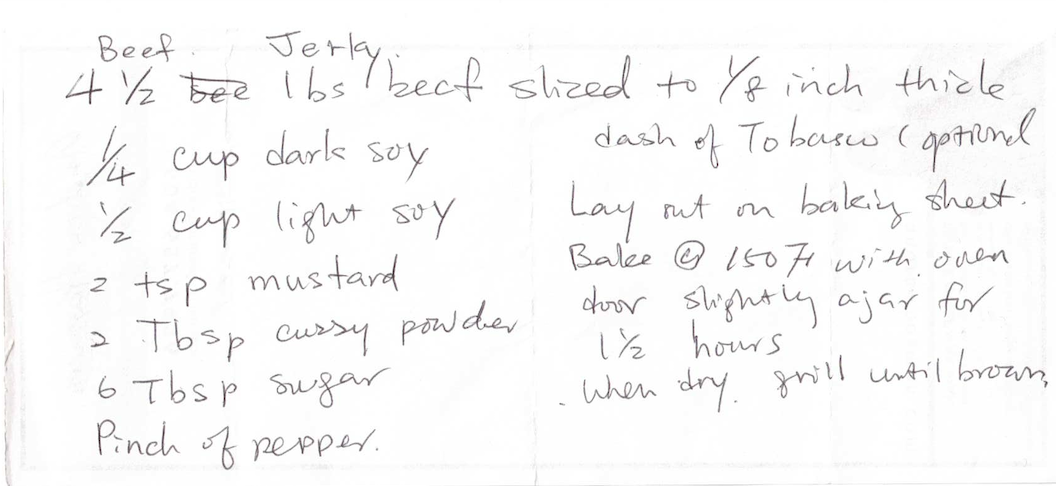 Beef Jerky.
4 ½ bee lbs beef sliced to ⅛ inch thick
¼ cup dark soy
½ cup light soy
2 tsp mustard
2 Tbsp curry powder
6 Tbsp sugar
Pinch of pepper.
dash of Tobasco (optional
Lay out on baking sheet.
Bake @ 150 F with oven
door slightly ajar for
1½ hours
. When dry. grill until brown,